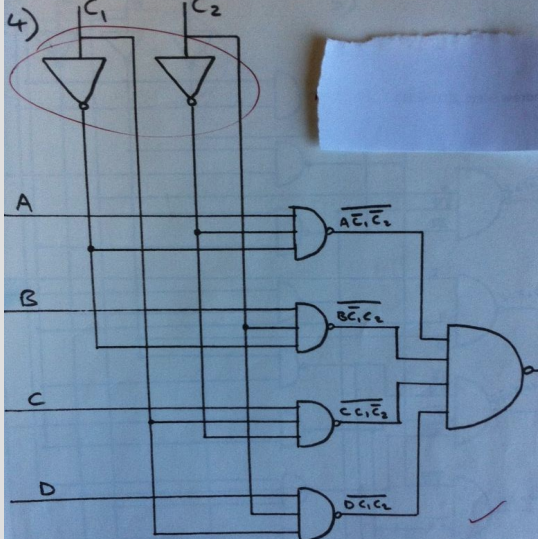 4) C₁ C₂
A
\overline{A\bar{C}₁\bar{C}₂}
B
\overline{B\bar{C}₁C₂}
C
\overline{CC₁\bar{C}₂}
D
\overline{DC₁C₂}